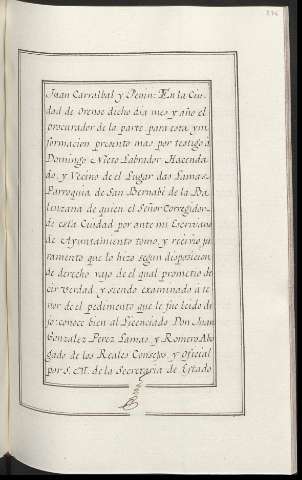 Juan Carralbal y Temn: En la Ciu-
dad de Orense dicho dia mes y año el
procurador de la parte para esta yn-
formacion presento mas por testigo a
Domingo Nieto Labrador Hacenda-
do, y Vecino de el Lugar das Lamas
Parroquia de San Bernabé de la Ba-
lenzana de quien el Señor Corregidor
de esta Ciudad por ante mi Escrivano
de Ayuntamiento tomo, y recivio ju-
ramento que lo hizo segun disposicion
de derecho vajo de el qual prometio de-
cir Verdad, y siendo examinado a te-
nor de el pedimento que le fue leido di-
jo: conoce bien al Licenciado Don Juan
Gonzalez Perez Lamas, y Romero Abo-
gado de los Reales Consejos, y Oficial
por S. M. de la Secretaria de Estado